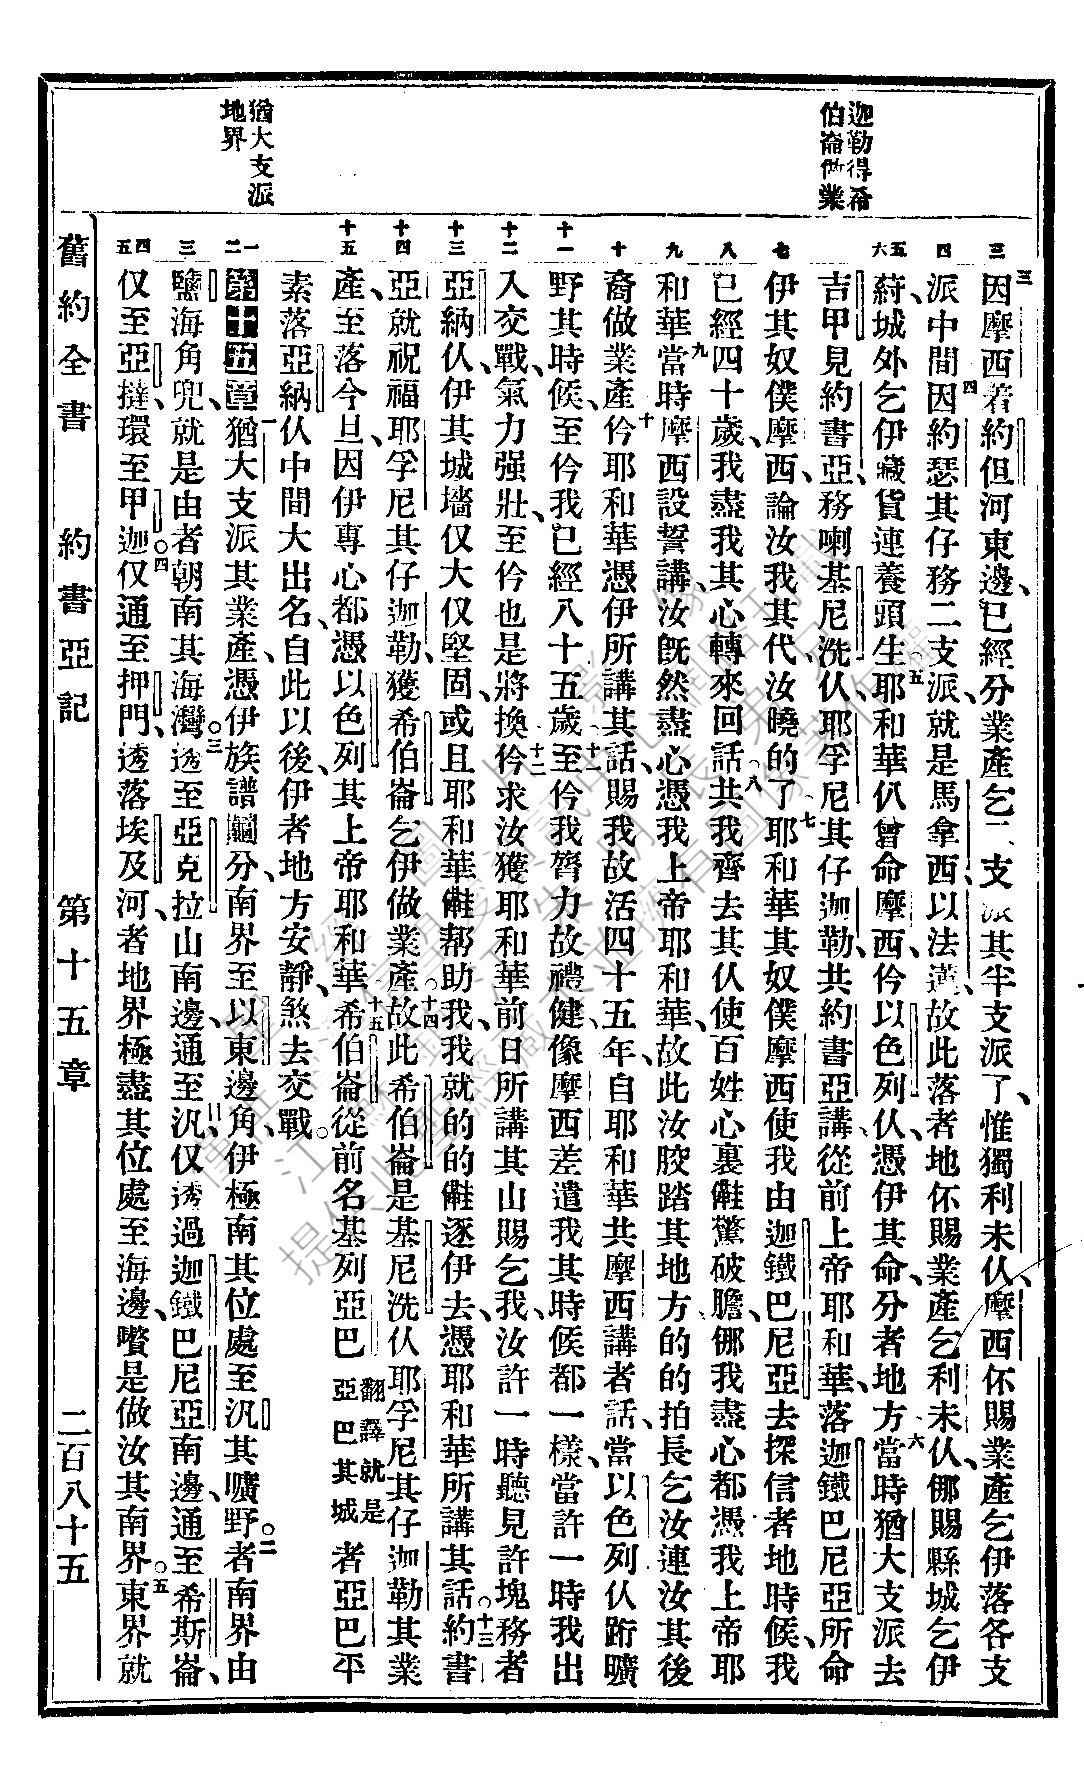 迦勒得希
伯崙做業
猶大支派
地界
三 四 五 六 七 八 九 十 十一 十二 十三 十四 十五 一 二 三 四 五
三因摩西着約但河東邊、已經分業產乞二支派其半支派了、惟獨利未仈、摩西伓賜業產乞伊落各支
派中間四因約瑟其仔務二支派、就是馬拿西、以法蓮、故此落者地伓賜業產乞利未仈、㑚賜縣城乞伊
䓁城外乞伊藏貨連養頭生○五耶和華仈曾命摩西、仱以色列仈、憑伊其命、分者地方○六當時猶大支派去
吉甲見約書亞、務喇基尼洗仈、耶孚尼其仔迦勒、共約書亞講、從前上帝耶和華、落迦鐵巴尼亞、所命
伊其奴僕摩西、論汝我其代、汝曉的了○七耶和華其奴僕摩西、使我由迦鐵巴尼亞去探信者地時候、我
已經四十歲、我盡我其心轉來回話○八共我齊去其仈、使百姓心裏𣍐驚破膽、㑚我盡心都憑我上帝耶
和華○九當時摩西設誓講、汝既然盡心憑我上帝耶和華、故此汝骹踏其地方、的的拍長乞汝連汝其後
裔做業產○十仱耶和華憑伊所講其話、賜我故活四十五年、自耶和華共摩西講者話、當以色列仈跡曠
野其時候、至仱我已經八十五歲○十一至仱我膂力故禮健、像摩西差遣我其時候都一樣、當許一時我出
入交戰、氣力强壯、至仱也是將換○十二仱求汝獲耶和華前日所講其山賜乞我、汝許一時聽見許塊務者
亞納仈、伊其城墻仅大仅堅固、或且耶和華幫助我、我就的的逐伊去、憑耶和華所講其話○十三約書
亞就祝福耶孚尼其仔迦勒、獲希伯崙乞伊做業產○十四故此希伯崙是基尼洗仈、耶孚尼其仔迦勒其業
產、至落今旦、因伊專心都憑以色列其上帝耶和華○十五希伯崙從前名基列亞巴 翻譯就是亞巴其城 者亞巴平
素落亞納仈中間大出名、自此以後、伊者地方安靜、煞去交戰○
第十五章 一猶大支派其業產、憑伊族譜䦚分、南界至以東邊角、伊極南其位處、至汎其曠野○二者南界由
鹽海角兜、就是由者朝南其海灣○三透至亞克拉山南邊、通至汎、仅透過迦鐵巴尼亞南邊、通至希斯崙、
仅至亞撻、環至甲迦○四仅通至押門、透落埃及河、者地界極盡其位處至海邊、嚽是做汝其南界○五東界就
舊約全書 約書亞記 第十五章 二百八十五